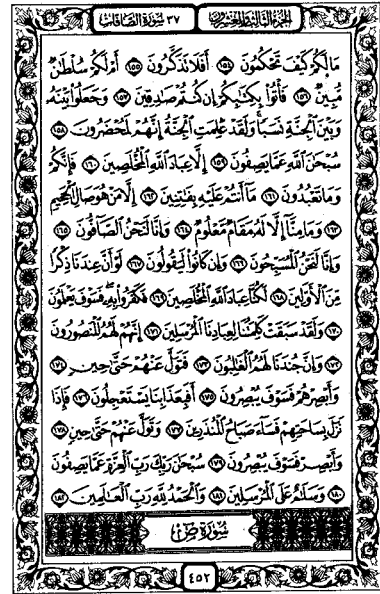 الجزء الثالث والعشرون ٣٧ سورة الصافات
مَا لَكُمْ كَيْفَ تَحْكُمُونَ ١٥٤ أَفَلَا تَذَكَّرُونَ ١٥٥ أَمْ لَكُمْ سُلْطَٰنٌ
مُّبِينٌ ١٥٦ فَأْتُوا۟ بِكِتَٰبِكُمْ إِن كُنتُمْ صَٰدِقِينَ ١٥٧ وَجَعَلُوا۟ بَيْنَهُۥ
وَبَيْنَ ٱلْجِنَّةِ نَسَبًا وَلَقَدْ عَلِمَتِ ٱلْجِنَّةُ إِنَّهُمْ لَمُحْضَرُونَ ١٥٨
سُبْحَٰنَ ٱللَّهِ عَمَّا يَصِفُونَ ١٥٩ إِلَّا عِبَادَ ٱللَّهِ ٱلْمُخْلَصِينَ ١٦٠ فَإِنَّكُمْ
وَمَا تَعْبُدُونَ ١٦١ مَآ أَنتُمْ عَلَيْهِ بِفَٰتِنِينَ ١٦٢ إِلَّا مَنْ هُوَ صَالِ ٱلْجَحِيمِ
١٦٣ وَمَا مِنَّآ إِلَّا لَهُۥ مَقَامٌ مَّعْلُومٌ ١٦٤ وَإِنَّا لَنَحْنُ ٱلصَّآفُّونَ ١٦٥
وَإِنَّا لَنَحْنُ ٱلْمُسَبِّحُونَ ١٦٦ وَإِن كَانُوا۟ لَيَقُولُونَ ١٦٧ لَوْ أَنَّ عِندَنَا ذِكْرًا
مِّنَ ٱلْأَوَّلِينَ ١٦٨ لَكُنَّا عِبَادَ ٱللَّهِ ٱلْمُخْلَصِينَ ١٦٩ فَكَفَرُوا۟ بِهِۦ فَسَوْفَ يَعْلَمُونَ
١٧٠ وَلَقَدْ سَبَقَتْ كَلِمَتُنَا لِعِبَادِنَا ٱلْمُرْسَلِينَ ١٧١ إِنَّهُمْ لَهُمُ ٱلْمَنصُورُونَ
١٧٢ وَإِنَّ جُندَنَا لَهُمُ ٱلْغَٰلِبُونَ ١٧٣ فَتَوَلَّ عَنْهُمْ حَتَّىٰ حِينٍ ١٧٤
وَأَبْصِرْهُمْ فَسَوْفَ يُبْصِرُونَ ١٧٥ أَفَبِعَذَابِنَا يَسْتَعْجِلُونَ ١٧٦ فَإِذَا
نَزَلَ بِسَاحَتِهِمْ فَسَآءَ صَبَاحُ ٱلْمُنذَرِينَ ١٧٧ وَتَوَلَّ عَنْهُمْ حَتَّىٰ حِينٍ ١٧٨
وَأَبْصِرْ فَسَوْفَ يُبْصِرُونَ ١٧٩ سُبْحَٰنَ رَبِّكَ رَبِّ ٱلْعِزَّةِ عَمَّا يَصِفُونَ
١٨٠ وَسَلَٰمٌ عَلَى ٱلْمُرْسَلِينَ ١٨١ وَٱلْحَمْدُ لِلَّهِ رَبِّ ٱلْعَٰلَمِينَ ١٨٢
سورة ص
٤٥٢